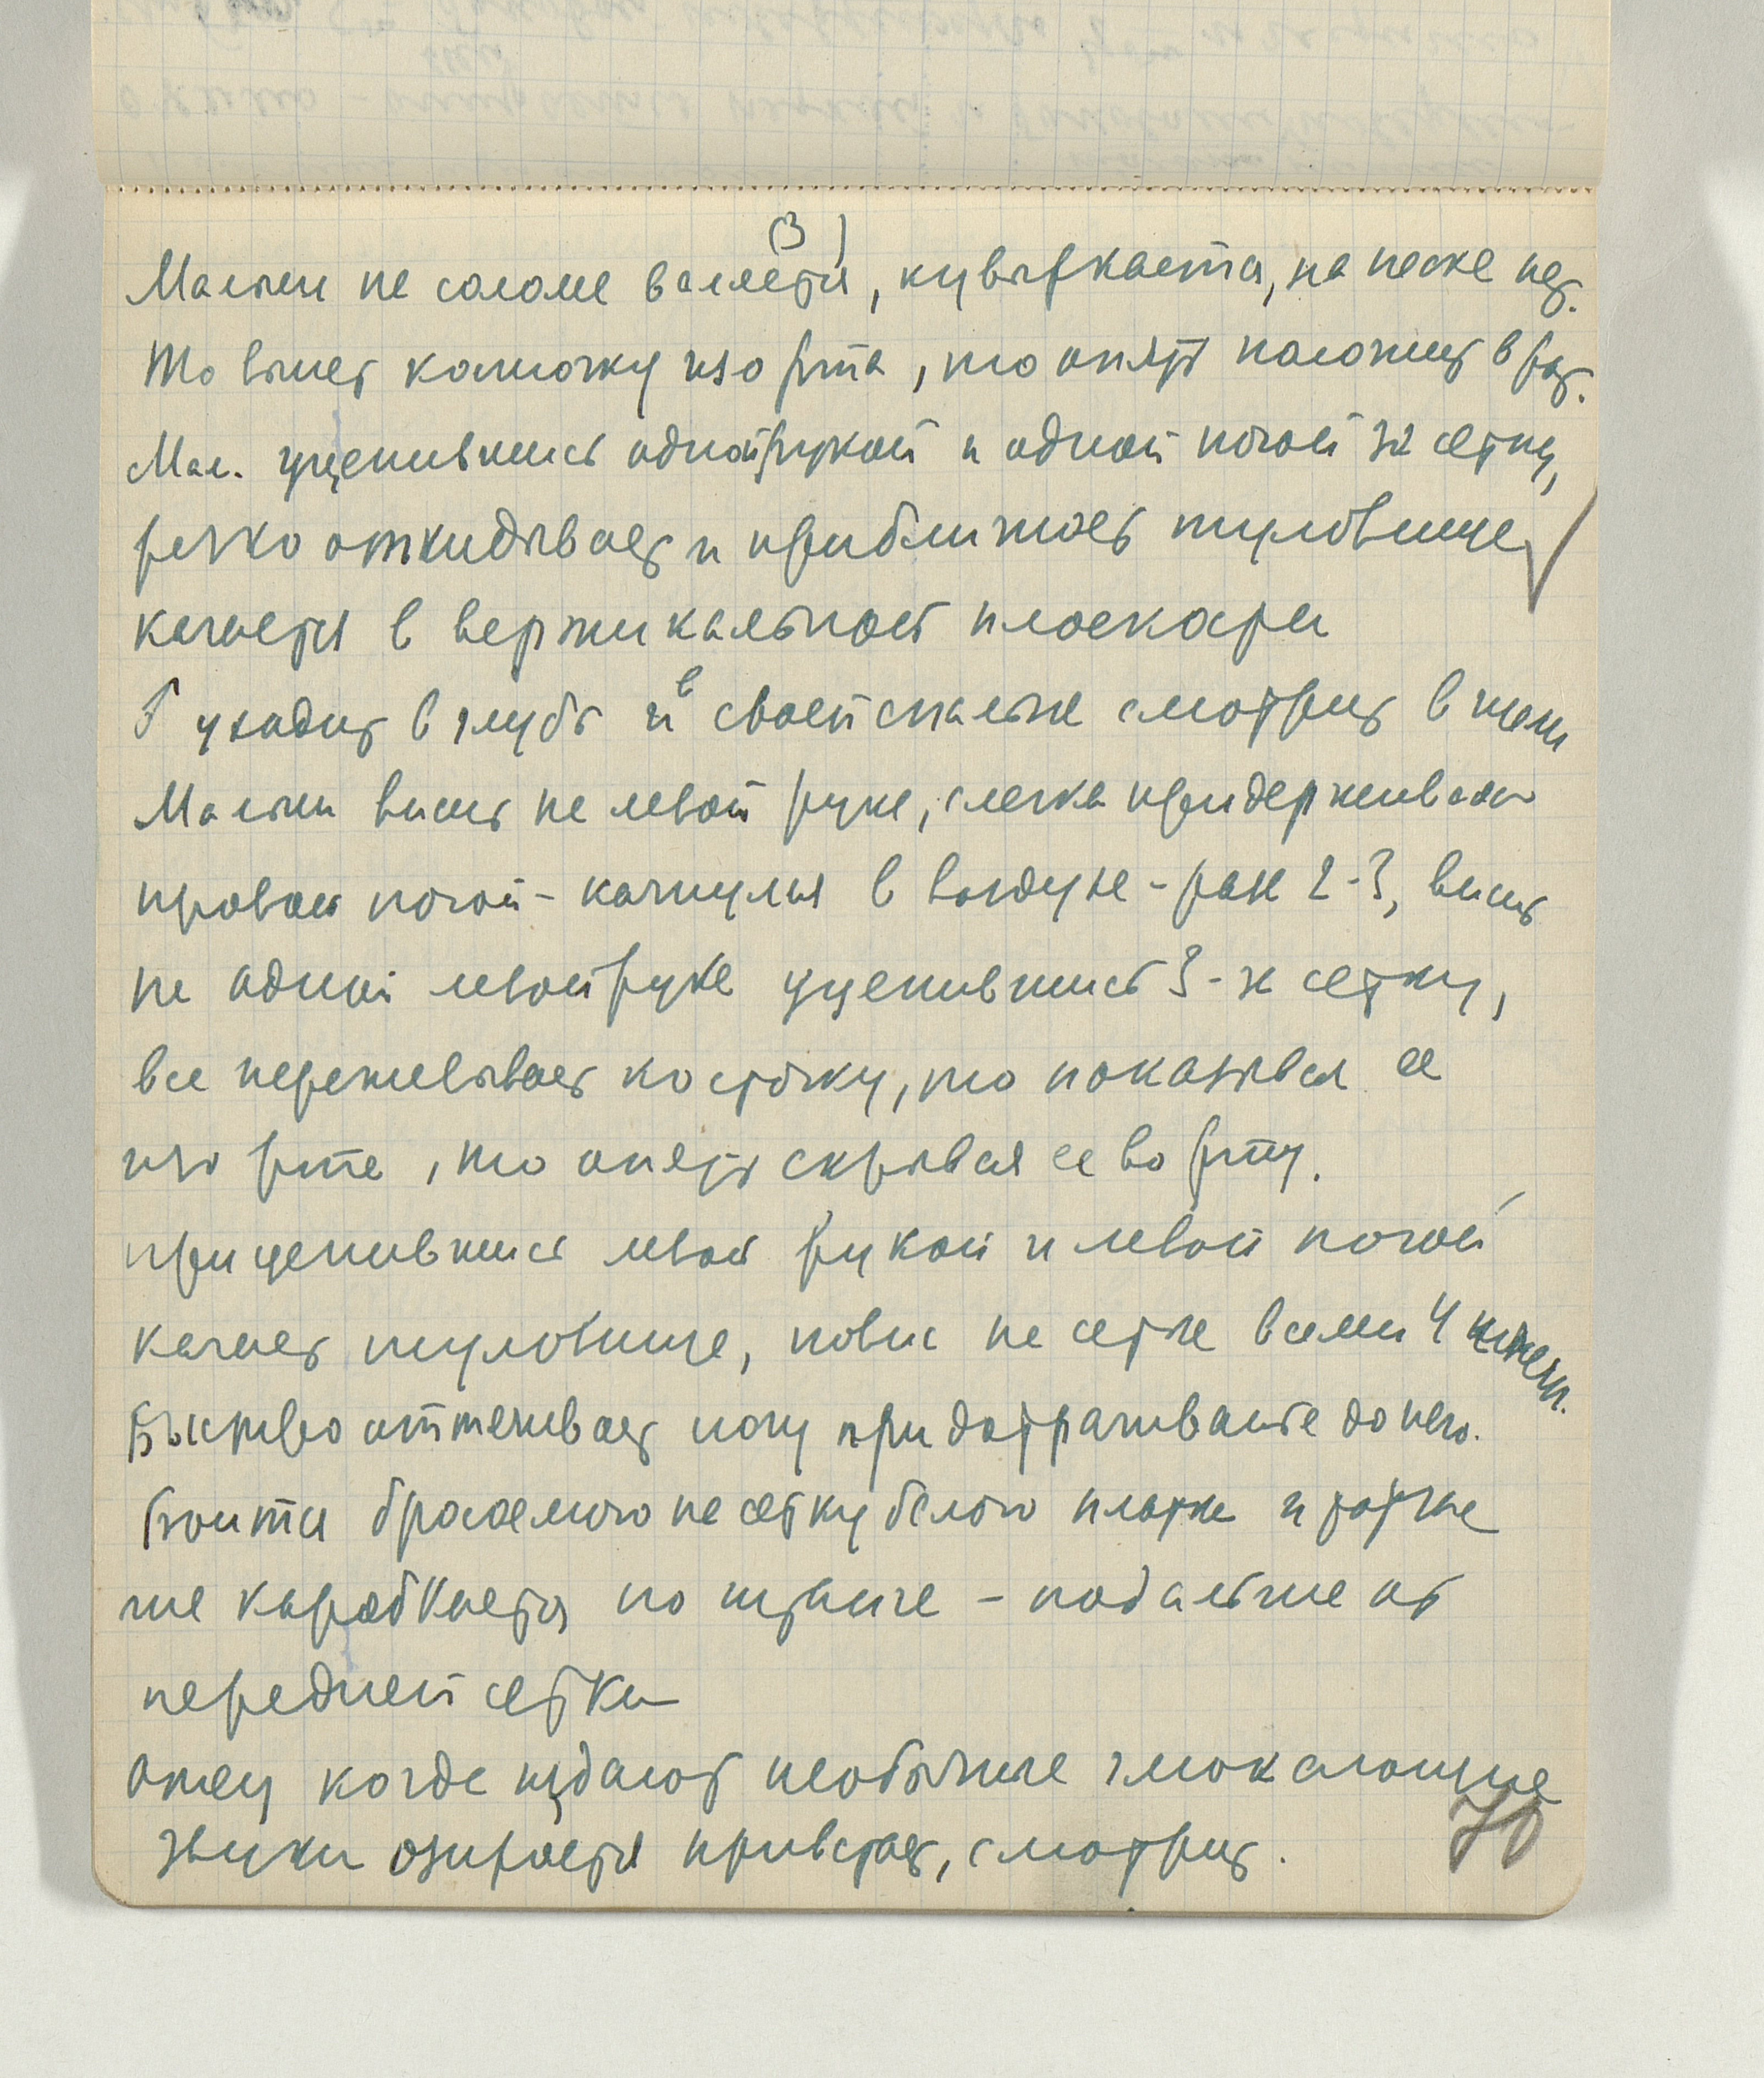 (3)
Малыш на соломе валяется, кувыркается, на песке нет.
То вынет косточку изо рта, то опять положит в рот.
Мал. уцепившись одной рукой и одной ногой за сетку,
резко откидывает и приближает туловище
качается в вертикальной плоскости
Г уходит в глубь и в своей спальне смотрит в щели
Малыш висит на левой руке, слегка придерживаясь
правой ногой - качнулся в воздухе - раза 2-3, висит
на одной левой руке уцепившись 3- за сетку,
все пережевывает косточку, то показывая ее
изо рта, то опять скрывая ее во рту.
прицепившись левой рукой и левой ногой
качает туловище, повис на сетке всеми 4 конечн.
Быстро оттягивает ногу при дотрагиваньи до него.
Боится бросаемого на сетку белого платка и тотчас
же карабкается по штанге - подальше от
передней сетки
Отец когда издают необычные чмокающие
звуки озирается привстает, смотрит.
70